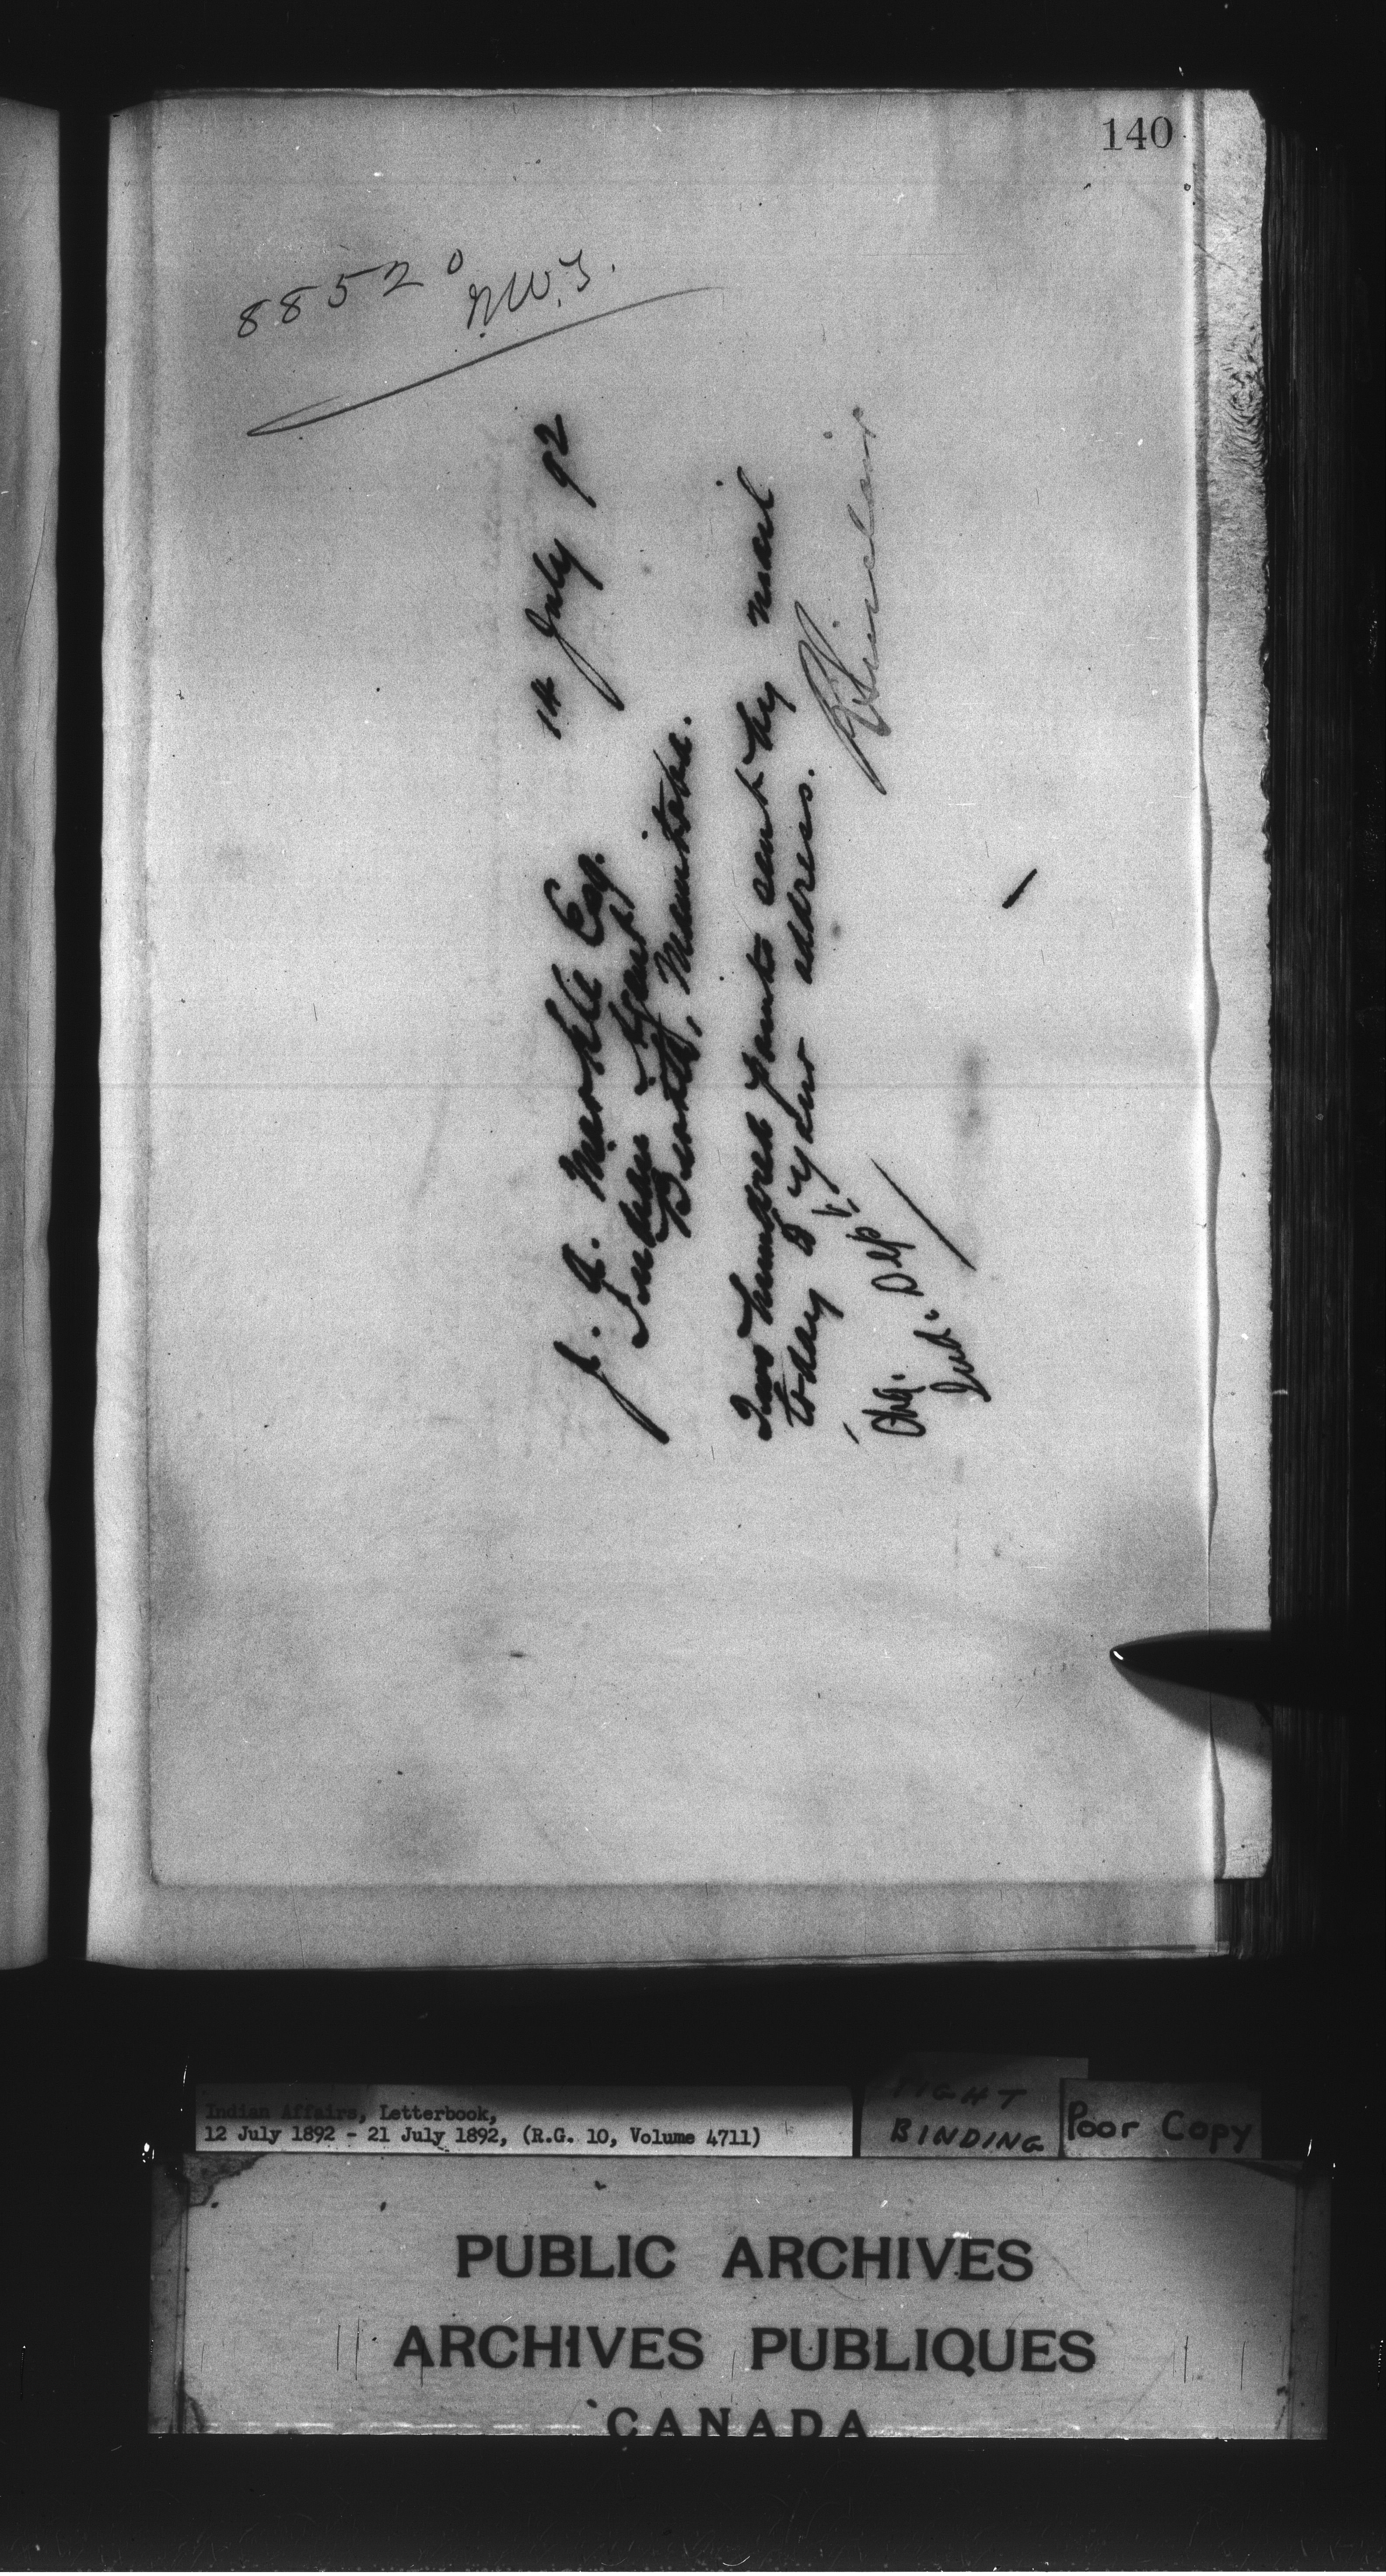 140
88520
N.W.T.
14 July 92
J. A. Markle Esq.
Indian Agent
Beulah, Manitoba.
Two hundred points sent by mail
today to your address.
R Sinclair
Chg. Dept.
Ind.
Indian Affairs, Letterbook,
12 July 1892 - 21 July 1892, (R.G. 10, Volume 4711)
TIGHT
BINDING
Poor Copy
PUBLIC ARCHIVES
ARCHIVES PUBLIQUES
CANADA